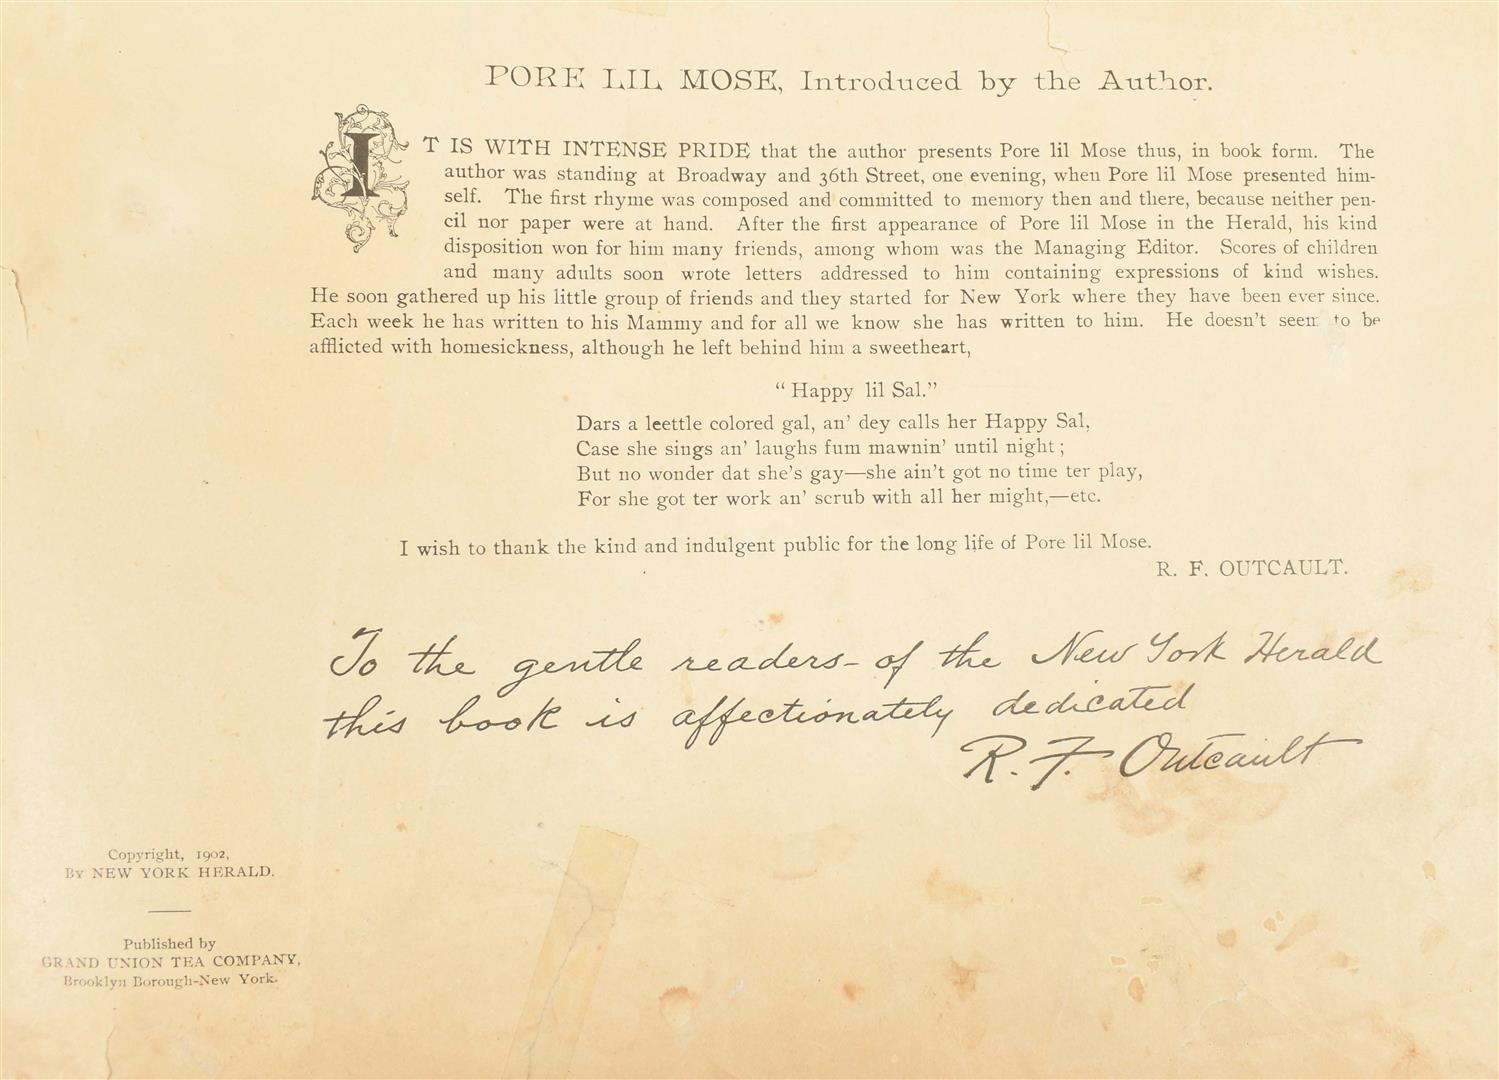 PORE LIL MOSE, Introduced by the Author.
IT IS WITH INTENSE PRIDE that the author presents Pore lil Mose thus, in book form. The
author was standing at Broadway and 36th Street, one evening, when Pore lil Mose presented him-
self. The first rhyme was composed and committed to memory then and there, because neither pen-
cil nor paper were at hand. After the first appearance of Pore lil Mose in the Herald, his kind
disposition won for him many friends, among whom was the Managing Editor. Scores of children
and many adults soon wrote letters addressed to him containing expressions of kind wishes.
He soon gathered up his little group of friends and they started for New York where they have been ever since.
Each week he has written to his Mammy and for all we know she has written to him. He doesn't seem to be
afflicted with homesickness, although he left behind him a sweetheart,
"Happy lil Sal."
Dars a leettle colored gal, an' dey calls her Happy Sal,
Case she sings an' laughs fum mawnin' until night;
But no wonder dat she's gay—she ain't got no time ter play,
For she got ter work an' scrub with all her might,—etc.
I wish to thank the kind and indulgent public for the long life of Pore lil Mose.
R. F. OUTCAULT.
To the gentle readers - of the New York Herald
this book is affectionately dedicated
R. F. Outcault
Copyright, 1902,
By NEW YORK HERALD.
Published by
GRAND UNION TEA COMPANY,
Brooklyn Borough-New York.